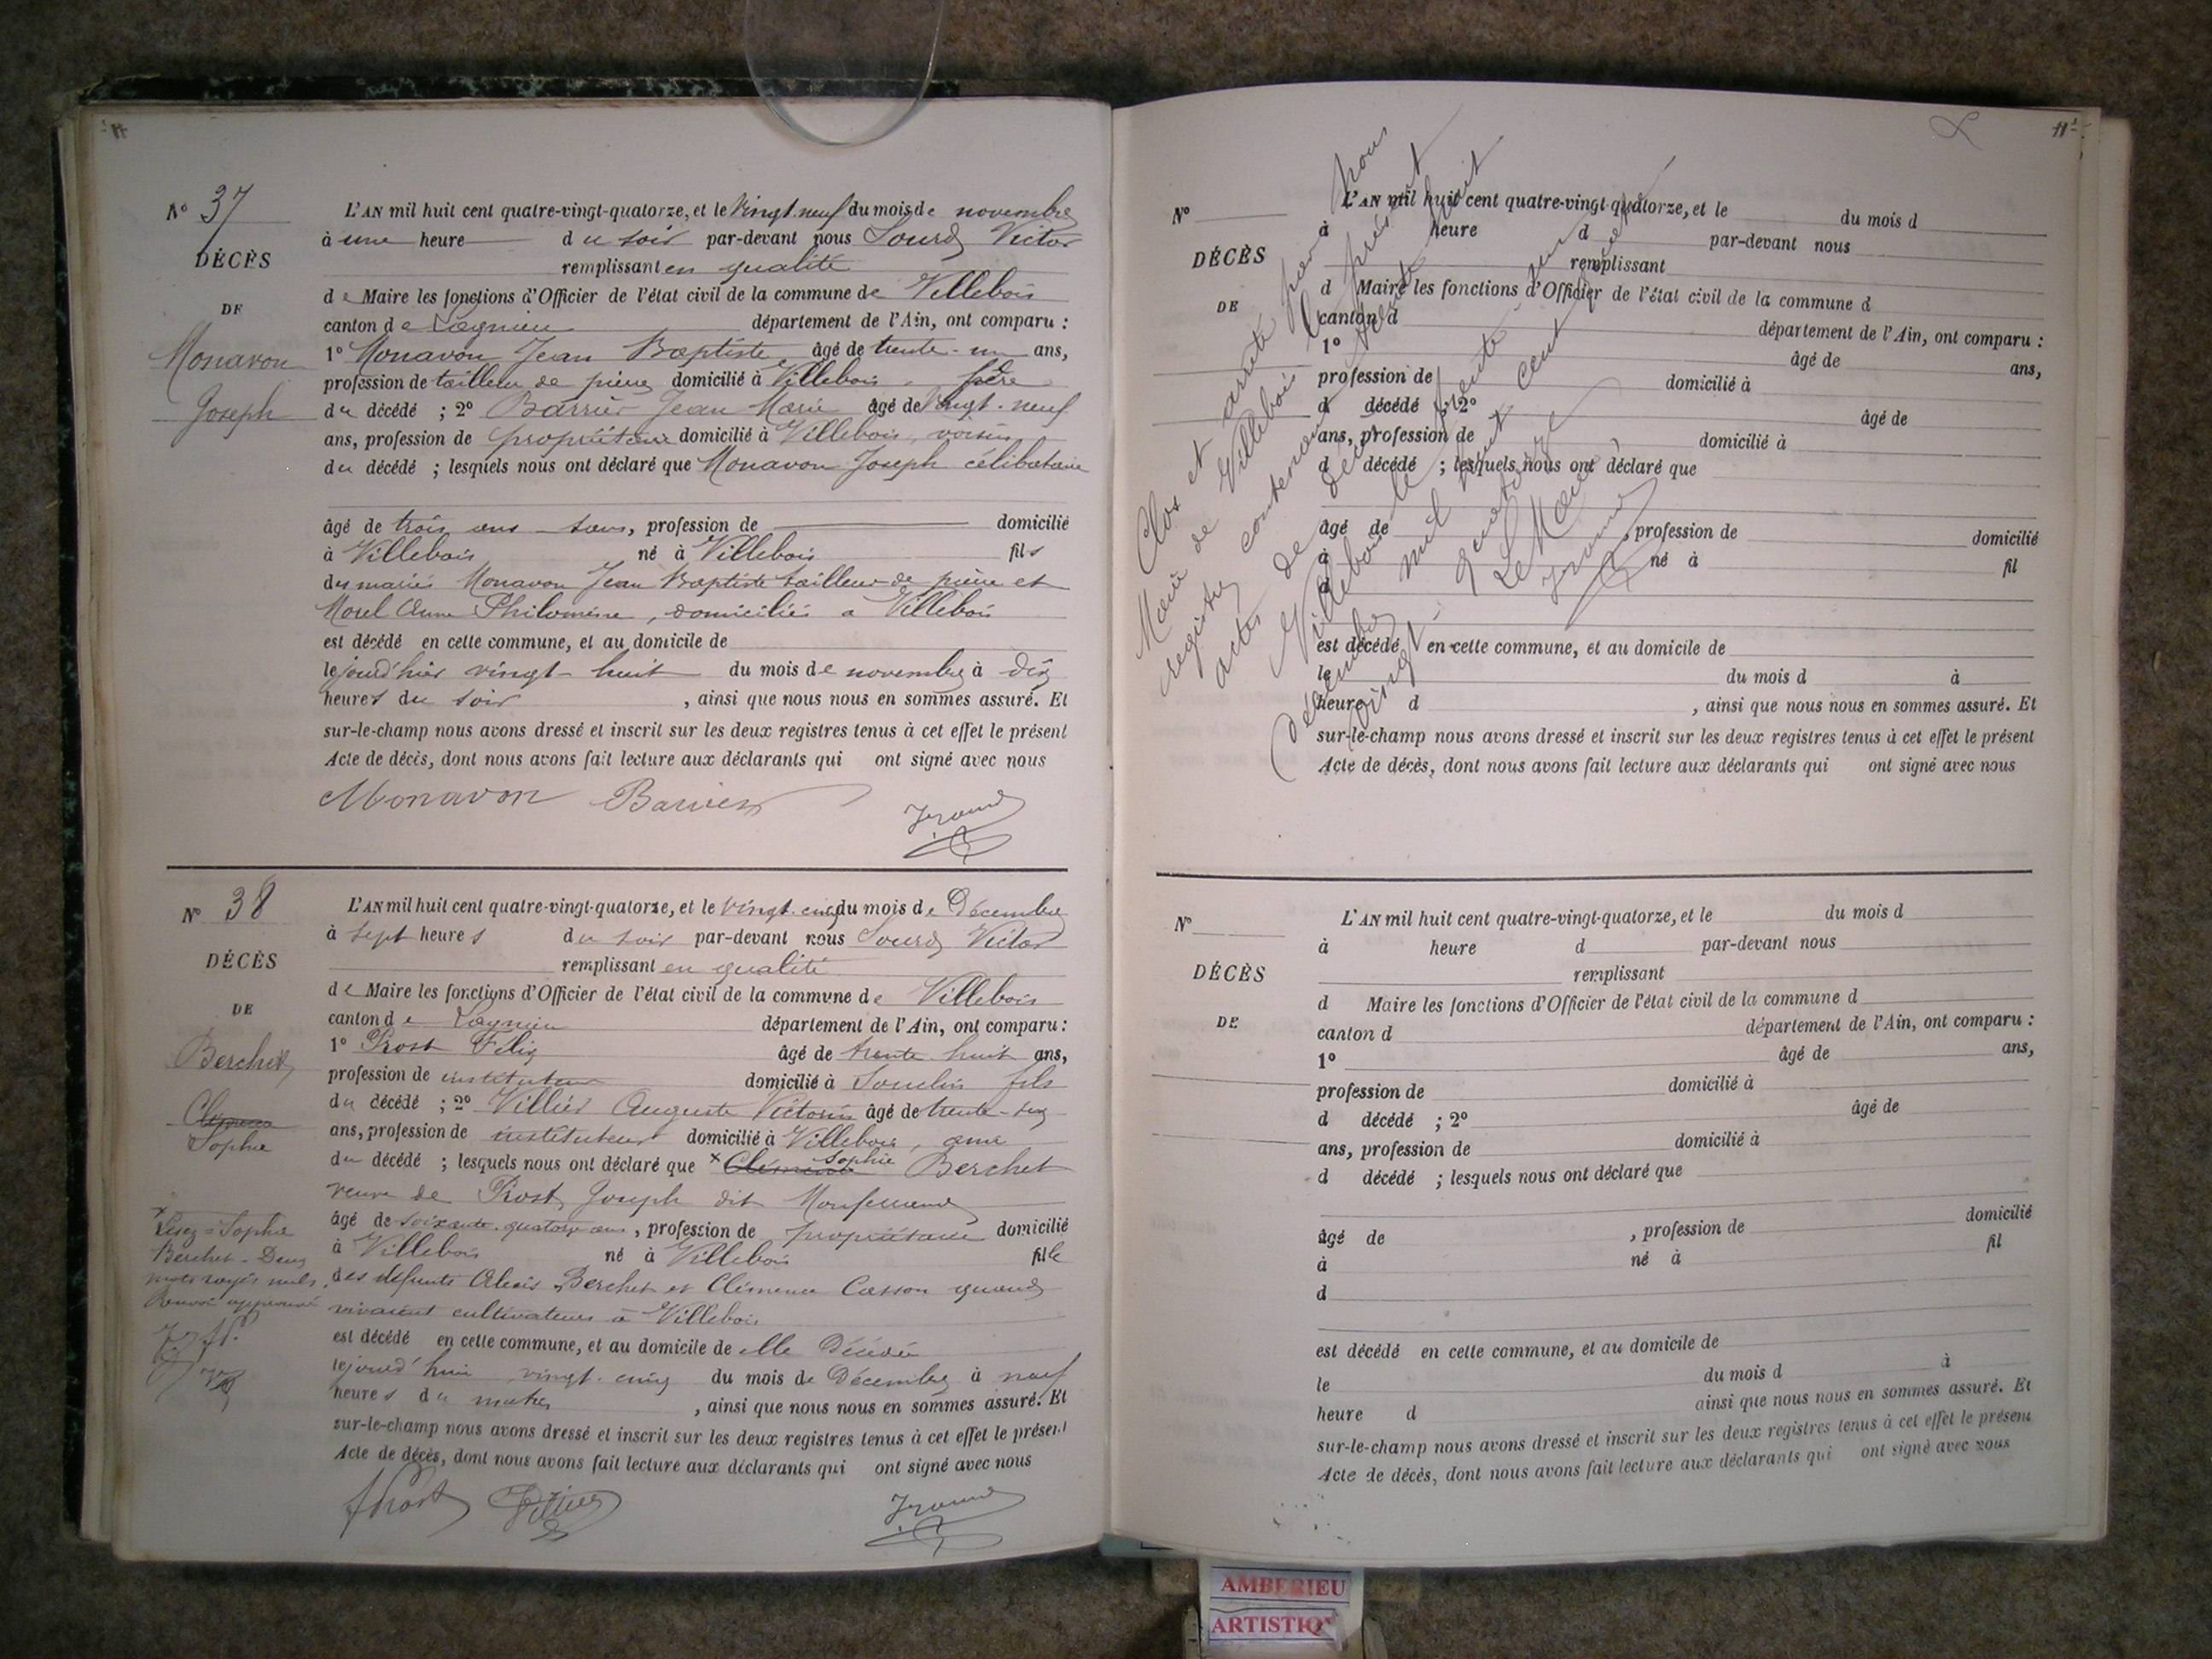 N° 37
DÉCÈS
DE
Monavon
Joseph
L'AN mil huit cent quatre-vingt-quatorze, et le vingt-neuf du mois de novembre
à une heure du soir par-devant nous Sourd Victor
remplissant en qualité
de Maire les fonctions d'Officier de l'état civil de la commune de Villebois
canton de Lagnieu département de l'Ain, ont comparu :
1° Monavon Jean Baptiste âgé de trente-un ans,
profession de tailleur de pierre domicilié à Villebois, père
du décédé ; 2° Barrier Jean Marie âgé de vingt-neuf
ans, profession de propriétaire domicilié à Villebois, voisin
du décédé ; lesquels nous ont déclaré que Monavon Joseph célibataire
âgé de trois ans, profession de domicilié
à Villebois né à Villebois fils
des mariés Monavon Jean Baptiste tailleur de pierre et
Morel Anne Philomène, domiciliés a Villebois
est décédé en cette commune, et au domicile de
le jourd'hier vingt-huit du mois de novembre à dix
heures du soir, ainsi que nous nous en sommes assuré. Et
sur-le-champ nous avons dressé et inscrit sur les deux registres tenus à cet effet le présent
Acte de décès, dont nous avons fait lecture aux déclarants qui ont signé avec nous
Monavon Barrier
N° 38
DÉCÈS
DE
Berchet
Clémence
Sophie
L'AN mil huit cent quatre-vingt-quatorze, et le vingt-cinq du mois de Décembre
à sept heures du soir par-devant nous Sourd Victor
remplissant en qualité
de Maire les fonctions d'Officier de l'état civil de la commune de Villebois
canton de Lagnieu département de l'Ain, ont comparu :
1° Prost Félix âgé de trente-huit ans,
profession de instituteur domicilié à Souclin fils
du décédé ; 2° Villier Auguste Victorin âgé de trente-six
ans, profession de instituteur domicilié à Villebois, ami
du décédé ; lesquels nous ont déclaré que × Clémence Sophie Berchet
veuve de Prost Joseph dit
âgé de soixante-quatorze ans, profession de propriétaire domicilié
à Villebois né à Villebois fille
des défunts Alexis Berchet et Clémence Casson quand
vivaient cultivateurs à Villebois
est décédé en cette commune, et au domicile de elle Décédée
le jourd'hui vingt-cinq du mois de Décembre à neuf
heures du matin, ainsi que nous nous en sommes assuré. Et
sur-le-champ nous avons dressé et inscrit sur les deux registres tenus à cet effet le présent
Acte de décès, dont nous avons fait lecture aux déclarants qui ont signé avec nous
× Lisez = Sophie
Berchet - Deux
mots rayés nuls.
Renvoi approuvé
Prost Villier
11
N°
DÉCÈS
DE
L'AN mil huit cent quatre-vingt-quatorze, et le du mois d
à heure d par-devant nous
remplissant
d Maire les fonctions d'Officier de l'état civil de la commune d
canton d département de l'Ain, ont comparu :
1° âgé de ans,
profession de domicilié à
d décédé ; 2° âgé de
ans, profession de domicilié à
d décédé ; lesquels nous ont déclaré que
âgé de , profession de domicilié
à né à fil
d
est décédé en cette commune, et au domicile de
le du mois d à
heure d , ainsi que nous nous en sommes assuré. Et
sur-le-champ nous avons dressé et inscrit sur les deux registres tenus à cet effet le présent
Acte de décès, dont nous avons fait lecture aux déclarants qui ont signé avec nous
Clos et arrêté par nous
Maire de Villebois le présent
registre contenant trente huit
actes de décès
Villebois le trente-un
décembre mil huit cent quatre
vingt-quatorze
Le Maire,
N°
DÉCÈS
DE
L'AN mil huit cent quatre-vingt-quatorze, et le du mois d
à heure d par-devant nous
remplissant
d Maire les fonctions d'Officier de l'état civil de la commune d
canton d département de l'Ain, ont comparu :
1° âgé de ans,
profession de domicilié à
d décédé ; 2° âgé de
ans, profession de domicilié à
d décédé ; lesquels nous ont déclaré que
âgé de , profession de domicilié
à né à fil
d
est décédé en cette commune, et au domicile de
le du mois d à
heure d ainsi que nous nous en sommes assuré. Et
sur-le-champ nous avons dressé et inscrit sur les deux registres tenus à cet effet le présent
Acte de décès, dont nous avons fait lecture aux déclarants qui ont signé avec nous
AMBERIEU
ARTISTIQ